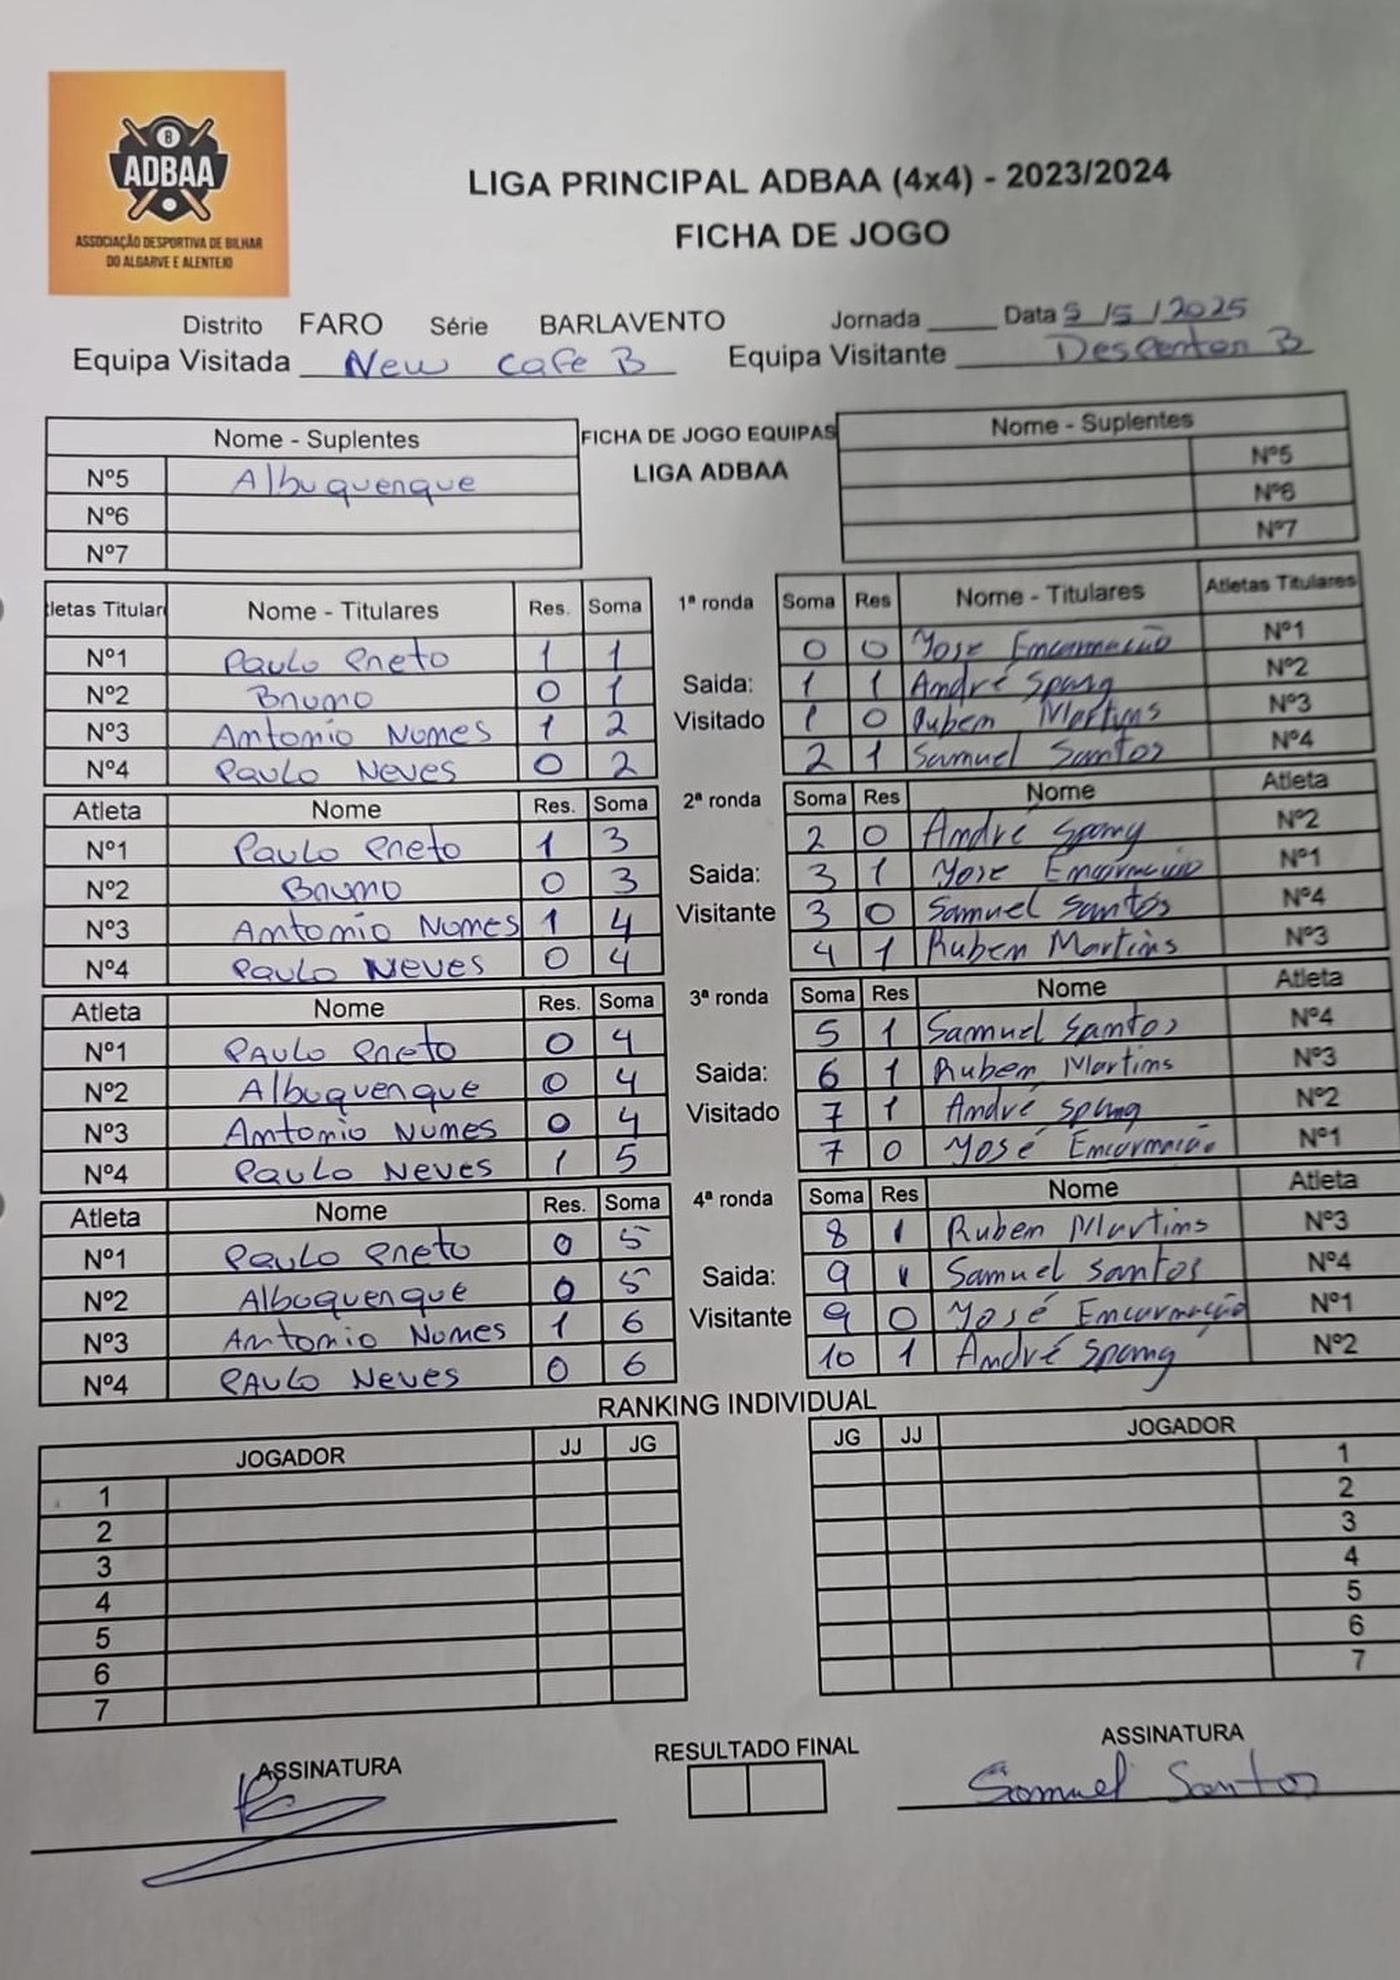 8
ADBAA
ASSOCIAÇÃO DESPORTIVA DE BILHAR
DO ALGARVE E ALENTEJO
LIGA PRINCIPAL ADBAA (4x4) - 2023/2024
FICHA DE JOGO
Distrito FARO Série BARLAVENTO Jornada ____ Data 5 / 5 / 2025
Equipa Visitada New Cafe B Equipa Visitante Desperton B
Nome - Suplentes FICHA DE JOGO EQUIPAS Nome - Suplentes
LIGA ADBAA
Nº5 Albuquenque Nº5
Nº6 Nº6
Nº7 Nº7
tletas Titular Nome - Titulares Res. Soma 1ª ronda Soma Res Nome - Titulares Atletas Titulares
Nº1 Paulo Pneto 1 1 0 0 José Encarnação Nº1
Nº2 Bruno 0 1 Saida: 1 1 André Spang Nº2
Nº3 Antonio Nunes 1 2 Visitado 1 0 Rubem Martins Nº3
Nº4 Paulo Neves 0 2 2 1 Samuel Santos Nº4
Atleta Nome Res. Soma 2ª ronda Soma Res Nome Atleta
Nº1 Paulo Pneto 1 3 2 0 André Spang Nº2
Nº2 Bruno 0 3 Saida: 3 1 José Encarnação Nº1
Nº3 Antonio Nunes 1 4 Visitante 3 0 Samuel Santos Nº4
Nº4 Paulo Neves 0 4 4 1 Rubem Martins Nº3
Atleta Nome Res. Soma 3ª ronda Soma Res Nome Atleta
Nº1 PAulo Pneto 0 4 5 1 Samuel Santos Nº4
Nº2 Albuquenque 0 4 Saida: 6 1 Rubem Martins Nº3
Nº3 Antonio Nunes 0 4 Visitado 7 1 André Spang Nº2
Nº4 Paulo Neves 1 5 7 0 José Encarnação Nº1
Atleta Nome Res. Soma 4ª ronda Soma Res Nome Atleta
Nº1 Paulo Pneto 0 5 8 1 Rubem Martins Nº3
Nº2 Albuquenque 0 5 Saida: 9 1 Samuel santos Nº4
Nº3 Antonio Nunes 1 6 Visitante 9 0 José Encarnação Nº1
Nº4 PAulo Neves 0 6 10 1 André Spang Nº2
RANKING INDIVIDUAL
JOGADOR JJ JG JG JJ JOGADOR
1 1
2 2
3 3
4 4
5 5
6 6
7 7
ASSINATURA RESULTADO FINAL ASSINATURA
Samuel Santos